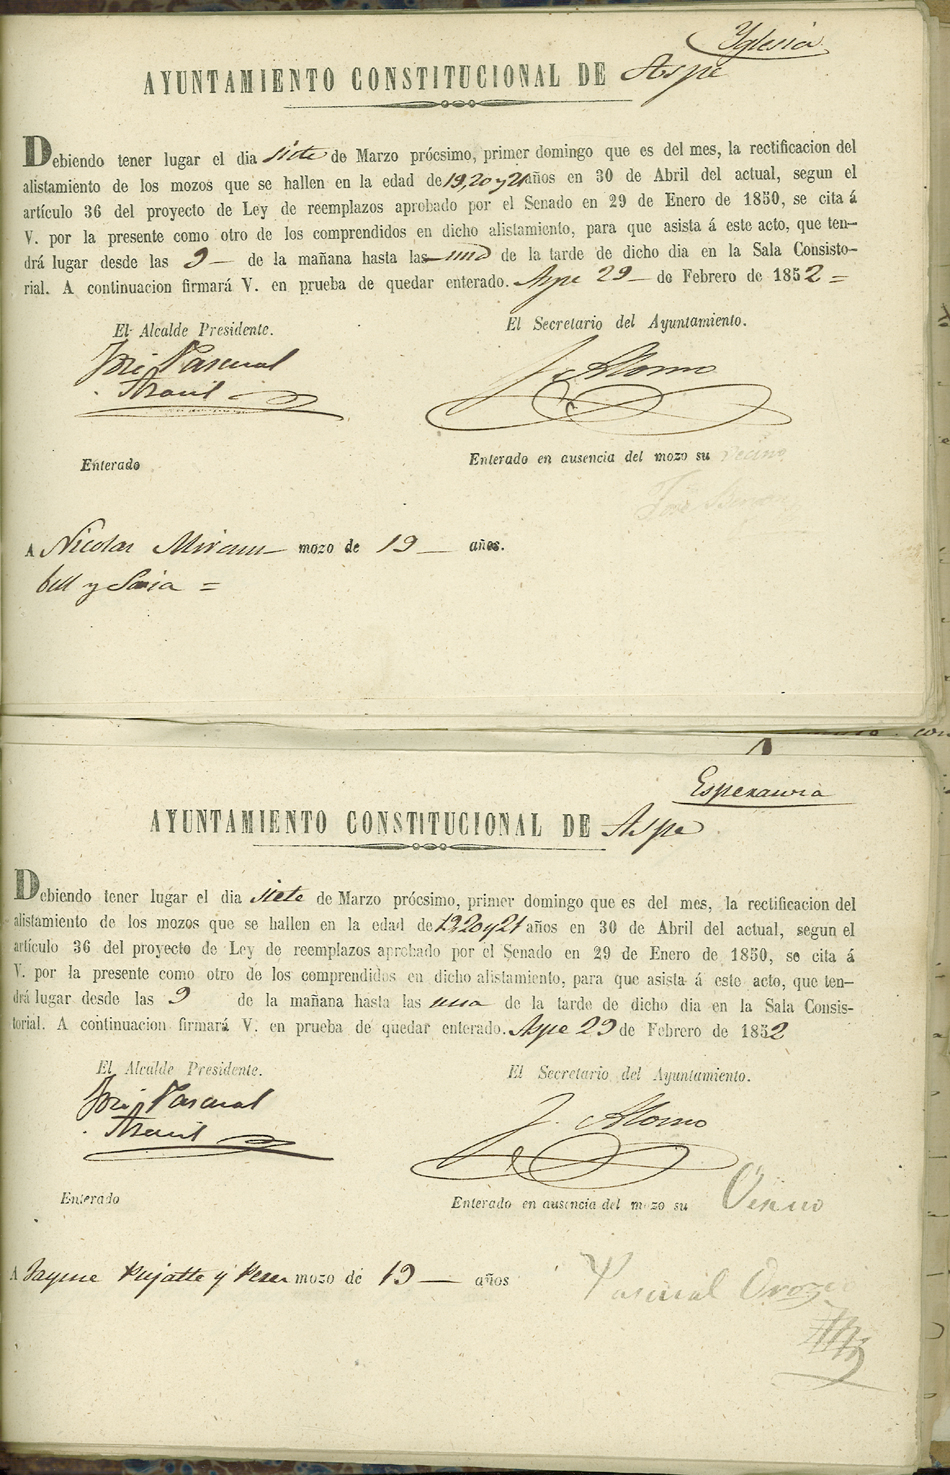 Yglesia
AYUNTAMIENTO CONSTITUCIONAL DE Aspe
Debiendo tener lugar el dia siete de Marzo prócsimo, primer domingo que es del mes, la rectificacion del
alistamiento de los mozos que se hallen en la edad de 19, 20 y 21 años en 30 de Abril del actual, segun el
artículo 36 del proyecto de Ley de reemplazos aprobado por el Senado en 29 de Enero de 1850, se cita á
V. por la presente como otro de los comprendidos en dicho alistamiento, para que asista á este acto, que ten-
drá lugar desde las 9 — de la mañana hasta las una de la tarde de dicho dia en la Sala Consisto-
rial. A continuacion firmará V. en prueba de quedar enterado. Aspe 29 — de Febrero de 1852 =
El Alcalde Presidente. El Secretario del Ayuntamiento.
José Pascual J. Alonso
Enterado Enterado en ausencia del mozo su vecino
José
A Nicolas Miram- mozo de 19 — años.
bell y Soria =
Esperanza
AYUNTAMIENTO CONSTITUCIONAL DE Aspe
Debiendo tener lugar el dia siete de Marzo prócsimo, primer domingo que es del mes, la rectificacion del
alistamiento de los mozos que se hallen en la edad de 19 20 y 21 años en 30 de Abril del actual, segun el
artículo 36 del proyecto de Ley de reemplazos aprobado por el Senado en 29 de Enero de 1850, se cita á
V. por la presente como otro de los comprendidos en dicho alistamiento, para que asista á este acto, que ten-
drá lugar desde las 9 de la mañana hasta las una de la tarde de dicho dia en la Sala Consis-
torial. A continuacion firmará V. en prueba de quedar enterado. Aspe 29 de Febrero de 1852
El Alcalde Presidente. El Secretario del Ayuntamiento.
José Pascual J. Alonso
Enterado Enterado en ausencia del mozo su Vesino
A Jayme Pujalte y Perez mozo de 19 — años
Pascual Orozco